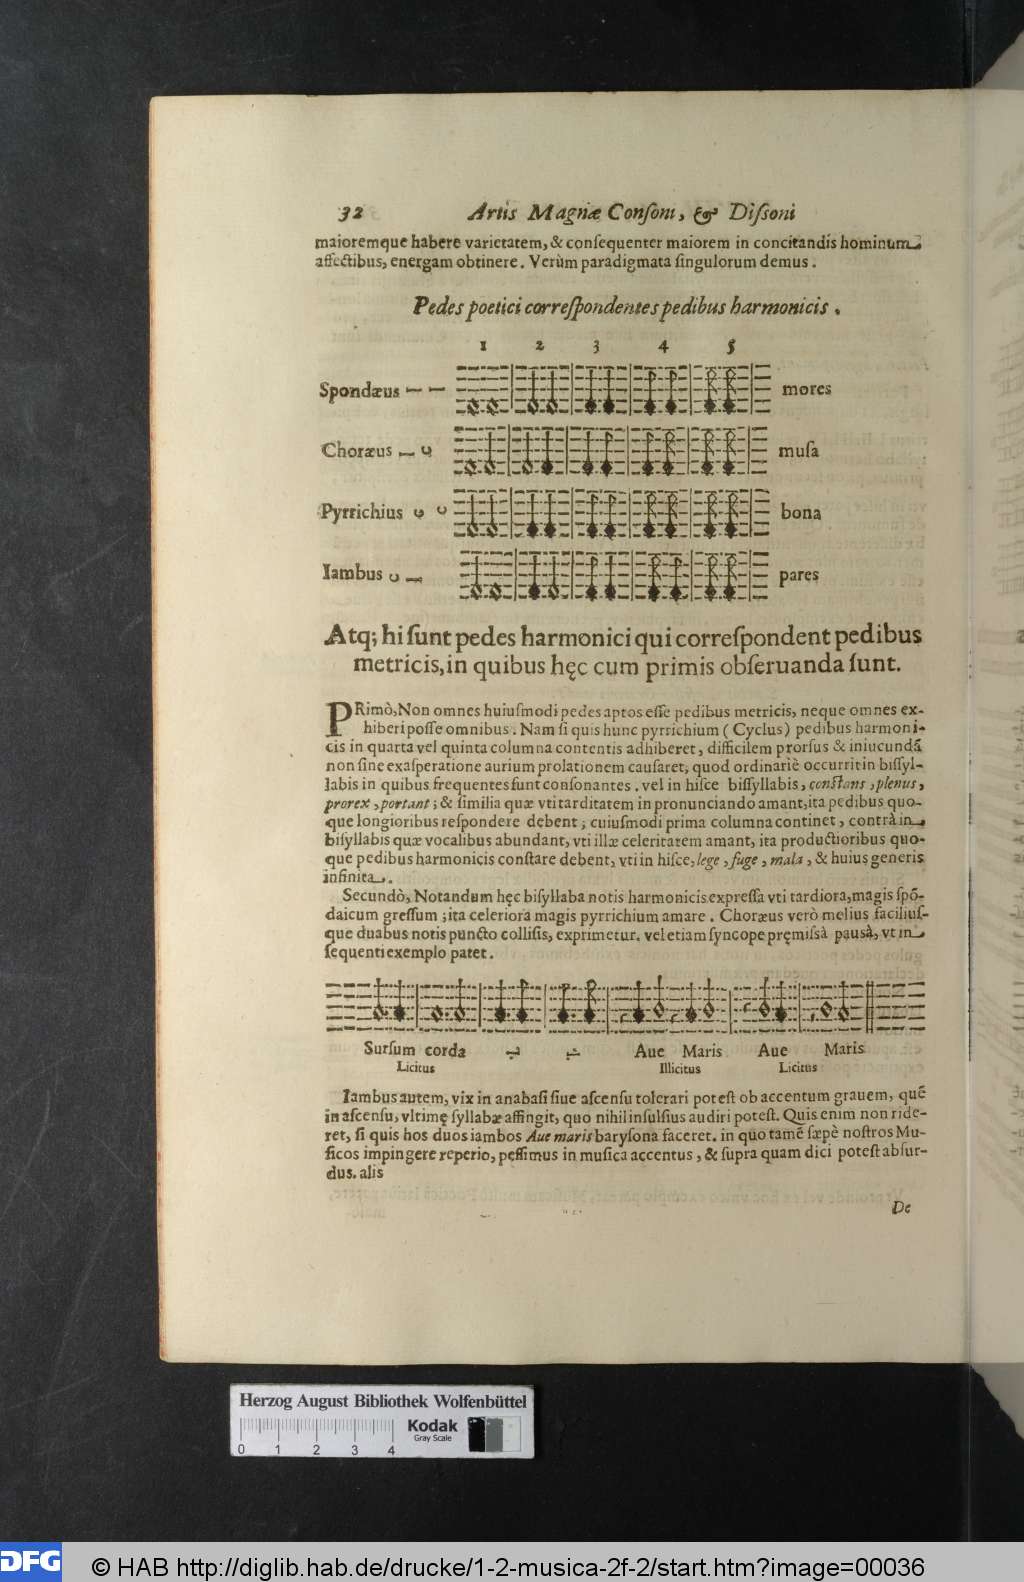 32 Artis Magnæ Conſoni, & Diſsoni
maioremque habere varietatem, & conſequenter maiorem in concitandis hominum
affectibus, energam obtinere. Verùm paradigmata ſingulorum demus.
Pedes poetici correſpondentes pedibus harmonicis.
1 2 3 4 5
Spondæus mores
Choræus muſa
Pyrrichius bona
Iambus pares
Atq; hi ſunt pedes harmonici qui correſpondent pedibus
metricis, in quibus hęc cum primis obſeruanda ſunt.
PRimò, Non omnes huiuſmodi pedes aptos eſſe pedibus metricis, neque omnes ex-
hiberi poſſe omnibus. Nam ſi quis hunc pyrrichium (Cyclus) pedibus harmoni-
cis in quarta vel quinta columna contentis adhiberet, difficilem prorſus & iniucundã
non ſine exaſperatione aurium prolationem cauſaret, quod ordinariè occurrit in biſſyl-
labis in quibus frequentes ſunt conſonantes. vel in hiſce biſſyllabis, conſtans, plenus,
prorex, portant; & ſimilia quæ vti tarditatem in pronunciando amant, ita pedibus quo-
que longioribus reſpondere debent; cuiuſmodi prima columna continet, contrà in
biſyllabis quæ vocalibus abundant, vti illæ celeritatem amant, ita productioribus quo-
que pedibus harmonicis conſtare debent, vti in hiſce, lege, fuge, mala, & huius generis
infinita.
Secundò, Notandum hęc biſyllaba notis harmonicis expreſſa vti tardiora, magis ſpõ-
daicum greſſum; ita celeriora magis pyrrichium amare. Choræus verò melius faciliuſ-
que duabus notis puncto colliſis, exprimetur. vel etiam ſyncope pręmiſsà pausà, vt in
ſequenti exemplo patet.
Surſum corda Aue Maris Aue Maris
Licitus Illicitus Licitus
Iambus autem, vix in anabaſi ſiue aſcenſu tolerari poteſt ob accentum grauem, quẽ
in aſcenſu, vltimę ſyllabæ affingit, quo nihil inſulſius audiri poteſt. Quis enim non ride-
ret, ſi quis hos duos iambos Aue maris baryſona faceret. in quo tamẽ ſæpè noſtros Mu-
ſicos impingere reperio, peſſimus in muſica accentus, & ſupra quam dici poteſt abſur-
dus. alis
De
Herzog August Bibliothek Wolfenbüttel
Kodak
Gray Scale
0 1 2 3 4
DFG © HAB http://diglib.hab.de/drucke/1-2-musica-2f-2/start.htm?image=00036